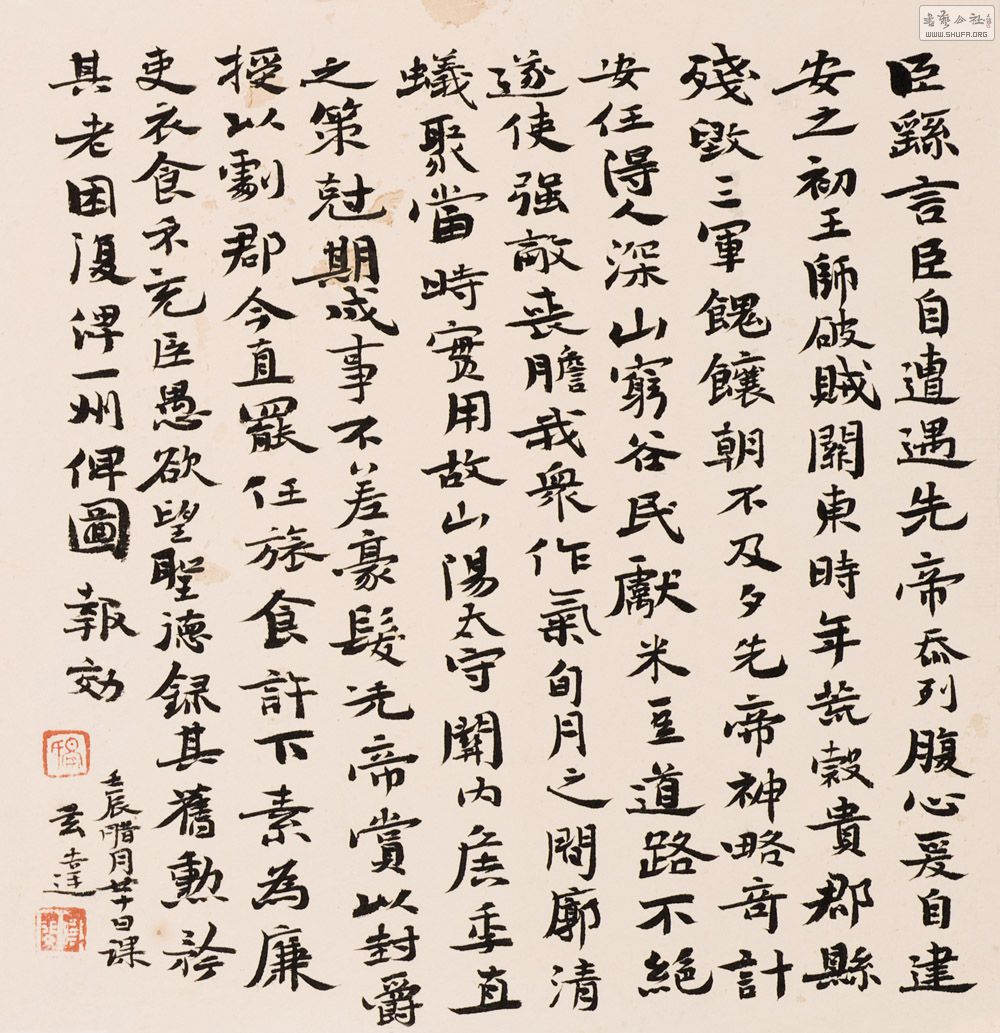 臣繇言臣自遭遇先帝忝列腹心爰自建
安之初王師破賊關東時年荒穀貴郡縣
殘毀三軍餽饟朝不及夕先帝神略奇計
安任得人深山窮谷民獻米豆道路不絕
遂使强敵喪膽我衆作氣旬月之間廓清
蟻聚當時實用故山陽太守關內侯季直
之策尅期成事不差豪髮先帝賞以封爵
授以劇郡今直罷任旅食許下素為廉
吏衣食不充臣愚欲望聖德録其舊勲矜
其老困復俾一州俾圖報効
壬辰腊月廿十日課
書藝公社
WWW.SHUFA.ORG